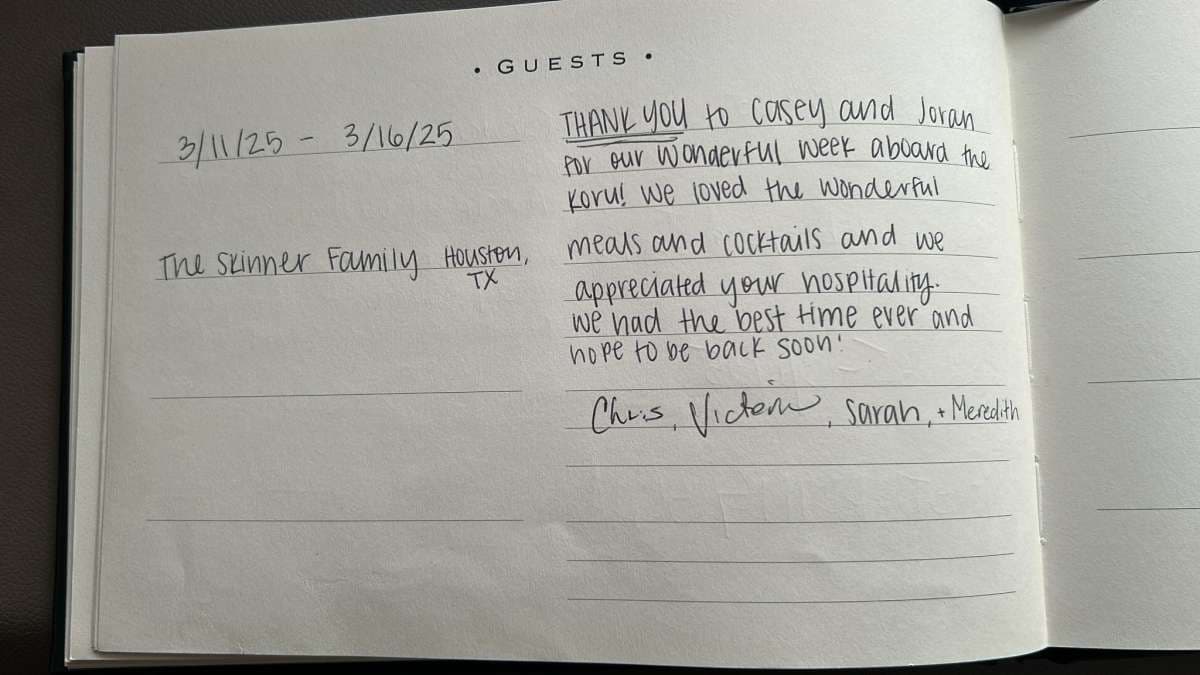 • GUESTS •
3/11/25 - 3/16/25
The Skinner Family Houston,
TX
THANK YOU to Casey and Joran
for our wonderful week aboard the
Koru! We loved the wonderful
meals and cocktails and we
appreciated your hospitality.
We had the best time ever and
hope to be back soon!
Chris, Victoria, Sarah, + Meredith